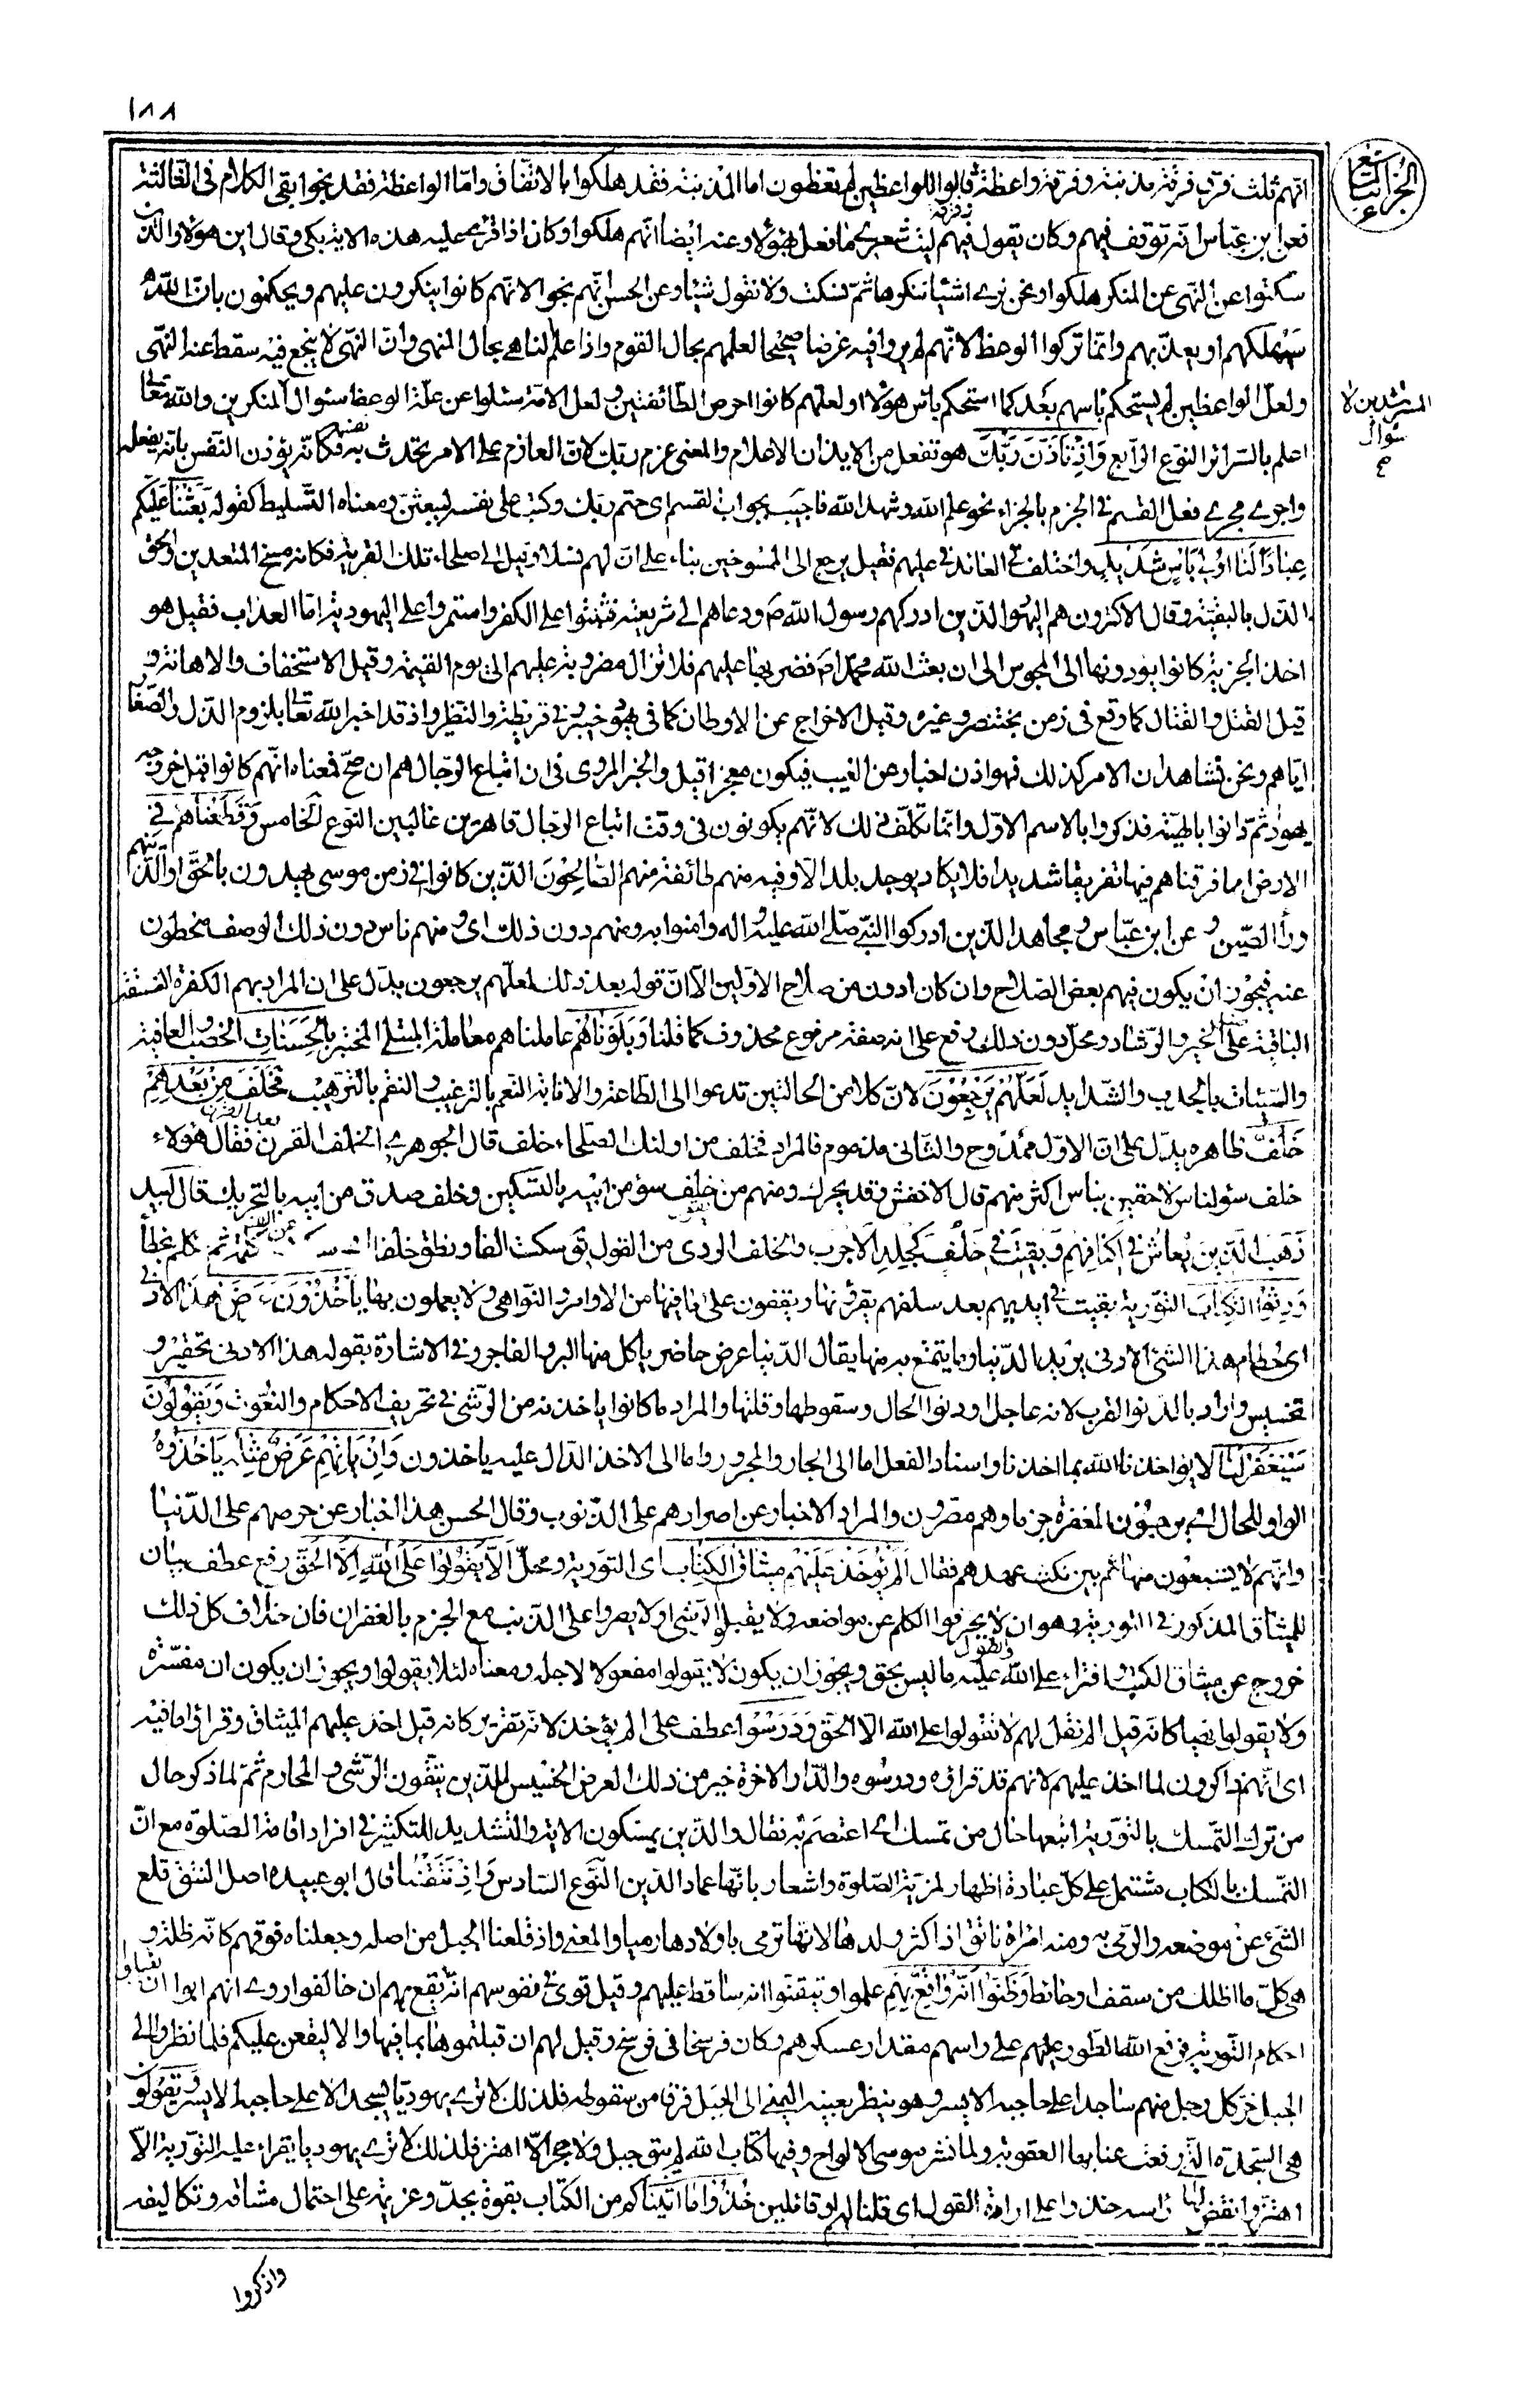 ١٨٨
الجزء التاسع
انهم ثلث فرق فرقة مذنبة وفرقة واعظة وفرقة قالوا للواعظين لم تعظون اما المذنبة فقد هلكوا بالاتفاق واما الواعظة فقد نجوا بقى الكلام فى الثالثة
فعن ابن عباس انه توقف فيهم وكان يقول فيهم ليت شعرى ما فعل بهؤلاء وعنه ايضا انهم هلكوا وكان اذا قرء عليه هذه الاية بكى وقال ان هؤلاء الذين
سكتوا عن النهى عن المنكر هلكوا ونحن نرى اشياء ننكرها ثم نسكت ولا نقول شيئا وعن الحسن انهم نجوا لانهم كانوا ينكرون عليهم ويحكمون بان الله
سيهلكهم او يعذبهم وانما تركوا الوعظ لانهم لم يروا فيه غرضا صحيحا لعلمهم بحال القوم واذا علم الناهى بحال المنهى وان النهى لا ينجع فيه سقط عنه النهى
ولعل الواعظين لم يستحكم يأسهم بعد كما استحكم يأس هؤلاء او لعلهم كانوا احرص الطائفتين ولعل الامة سئلوا عن علة الوعظ سئوال المنكرين والله تعالى
المسترشدين لا سئوال صح
اعلم بالسرائر النوع الرابع وَاِذْ تَاَذَّنَ رَبُّكَ هو تفعل من الايذان الاعلام والمعنى عزم ربك لان العازم على الامر يحدث به نفسه فكانه يؤذن النفس بانه يفعله
واجرى مجرى فعل القسم فى الجزم بالجزاء نحو علم الله وشهد الله فاجيب بجواب لقسم اى حتم ربك وكتب على نفسه ليبعثن ومعناه التسليط كقوله بَعَثْنا عَلَيْكُم
عِباداً لَنا اُولى بَأْسٍ شَديدٍ واختلف فى العائد فى عليهم فقيل يرجع الى الممسوخين بناء على ان لهم نسلا وقيل الى صلحاء تلك القرية فكانه مسخ المتعدين والحق
الذل بالبقية وقال الاكثرون هم اليهود الذين ادركهم رسول الله ص ودعاهم الى شريعته فثبتوا على الكفر واستمروا على اليهودية اما العذاب فقيل هو
اخذ الجزية كانوا يؤدونها الى المجوس الى ان بعث الله محمدا ص فضربها عليهم فلا تزال مضروبة عليهم الى يوم القيمة وقيل الاستخفاف والاهانة و
قيل القتل والقتال كما وقع فى زمن بختنصر وغيره وقيل الاخراج عن الاوطان كما فى يهود خيبر وبنى قريظة والنظير واذ قد اخبر الله تعالى بلزوم الذل والصغار
اياهم ونحن نشاهد ان الامر كذلك فهو اذن اخبار عن الغيب فيكون معجزا قيل والخبر المروى فى ان اتباع الدجال هم ان صح فمعناه انهم كانوا قبل خروجه
يهودا ثم دانوا بالهيته فذكروا بالاسم الاول وانما تكلف ذلك لانهم يكونون فى وقت اتباع الدجال قاهرين غالبين النوع الخامس وَقَطَّعْناهُمْ فى
الارض امما فرقناهم فيها تفريقا شديدا فلا يكاد يوجد بلد الا وفيه منهم طائفة منهم الصّالِحُونَ الذين كانوا فى زمن موسى يهدون بالحق او الذين
وراء الصين وعن ابن عباس ومجاهد الذين ادركوا النبى صلى الله عليه واله وامنوا به ومنهم دون ذلك اى ومنهم ناس دون ذلك الوصف منحطون
عنه فيجوز ان يكون فيهم بعض الصلاح وان كان ادون من صلاح الاولين الا ان قوله بعد ذلك لعلهم يرجعون يدل على ان المراد بهم الكفرة الفسقة
الباقية على الخير والرشاد ومحل دون ذلك رفع على انه صفة مرفوع محذوف كما قلنا وَبَلَوْناهُمْ عاملناهم معاملة المبتلى المختبر بِالحَسَناتِ الخصب والعافية
والسيئات بالجدب والشدايد لَعَلَّهُمْ يَرْجِعُونَ لان كلا من الحالتين تدعوا الى الطاعة والانابة النعم بالترغيب والنقم بالترهيب فَخَلَفَ مِنْ بَعْدِهِمْ
خَلْفٌ ظاهره يدل على ان الاول ممدوح والثانى مذموم فالمراد فخلف من اولئك الصلحاء خلف قال الجوهرى الخلف القرن بعد القرن فقال هؤلاء
خلف سؤ لناس لاحقين بناس اكثر منهم قال الاخفش وقد يحرك ومنهم من خلف سؤ من ابيه بالتسكين وخلف صدق من ابيه بالتحريك قال لبيد
ذَهَبَ الَّذينَ يُعاشُ فى اَكْنافِهِم وَبَقيتُ فى خَلْفٍ كَجِلْدِ الاَجْرَبِ والخلف الردى من القول يقال سكت الفا ونطق خلفا اى سكت عن الف كلمة ثم تكلم بخطأ
وَرِثُوا الْكِتابَ التورية بقيت فى ايديهم بعد سلفهم يقرؤنها ويقفون على ما فيها من الاوامر والنواهى ولا يعملون بها يَأْخُذُونَ عَرَضَ هٰذَا الْاَدْنى
اى حطام هذا الشئ الادنى يريد الدنيا وما يتمتع به منها يقال الدنيا عرض حاضر ياكل منها البر والفاجر وفى الاشارة بقوله هذا الادنى تحقير و
تخسيس واراد بالدنو القرب لانه عاجل او دنو الحال وسقوطها وقلتها والمراد ما كانوا ياخذونه من الرشى فى تحريف الاحكام والنعوت وَيَقُولُونَ
سَيُغْفَرُ لَنا لا يؤاخذنا الله بما اخذنا واسناد الفعل اما الى الجار والمجرور واما الى الاخذ الدال عليه ياخذون وَاِنْ يَأْتِهِمْ عَرَضٌ مِثْلُه يَأْخُذُوهُ
الواو للحال اى يرجون المغفرة جزما وهم مصرون والمراد الاخبار عن اصرارهم على الذنوب وقال الحسن هذا اخبار عن حرصهم على الدنيا
وانهم لا يشبعون منها ثم بين نكث عهدهم فقال اَلَمْ يُؤْخَذْ عَلَيْهِمْ ميثاقُ الْكِتابِ اى التورية ومحل اَلاّ يَقُولُوا عَلَى اللهِ اِلَّا الحَقَّ رفع عطف بيان
للميثاق المذكور فى التورية وهو ان لا يحرفوا الكلم عن مواضعه ولا يقبلوا الرشى او لا يصروا على الذنب مع الجزم بالغفران فان خلاف كل ذلك
خروج عن ميثاق الكتب وافتراء على الله عليه ما ليس بحق ويجوز ان يكون لا يقولوا مفعولا لاجله ومعناه لئلا يقولوا ويجوز ان يكون ان مفسرة
ولا يقولوا نهيا كانه قيل الم نقل لهم لا تقولوا على الله الا الحق وَدَرَسُوا عطف على الم يؤخذ لانه تقرير كانه قيل اخذ عليهم الميثاق وقراؤا ما فيه
اى انهم ذاكرون لما اخذ عليهم لانهم قد قراؤه ودرسوه والدار الاخرة خير من ذلك العرض الخسيس للذين يتقون الرشى والمحارم ثم لما ذكر حال
من ترك التمسك بالتورية اتبعها حال من تمسك اى اعتصم به فقال والذين يمسكون الاية والتشديد للتكثير فى افراد اقامة الصلوة مع ان
التمسك بالكتاب مشتمل على كل عبادة اظهار لمزية الصلوة واشعار بانها عماد الدين النوع السادس وَاِذْ نَتَقْنَا قال ابو عبيده اصل النتق قلع
الشئ عن موضعه والرمى به ومنه امراة ناتق اذا كثر ولدها لانها ترمى باولادها رميا والمعنى واذ قلعنا الجبل من اصله وجعلناه فوقهم كانه ظلة و
هى كل ما اظلك من سقف او حائط وَظَنُّوا اَنَّهُ واقِعٌ بِهِمْ علموا وتيقنوا انه ساقط عليهم وقيل قوى فى نفوسهم انه يقع بهم ان خالفوا روى انهم ابوا ان يقبلوا
احكام التورية فرفع الله الطور عليهم على راسهم مقدار عسكرهم وكان فرسخا فى فرسخ وقيل لهم ان قبلتموها بما فيها والا ليقعن عليكم فلما نظروا الى
الجبل خر كل رجل منهم ساجدا على حاجبه الايسر وهو ينظر بعينه اليمنى الى الجبل فرقا من سقوطه فلذلك لا ترى يهوديا يسجد الا على حاجبه الايسر ويقولون
هى السجدة التى رفعت عنا بها العقوبة ولما نشر موسى الالواح وفيها كتاب الله لم يبق جبل ولا حجر الا اهتز فلذلك لا ترى يهوديا يقراء عليه التورية الا
اهتز وانغض لها راسه خذوا على ارادة القول اى قلنا لهم او قائلين خُذُوا ما اتَيْناكُم من الكتاب بقوة بجد وعزيمة على احتمال مشاقه وتكاليفه
واذكروا